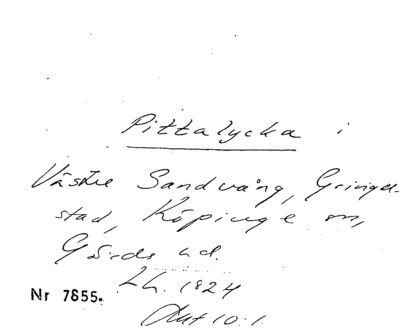 Pittalycka i
Västre Sandvång, Gringel-
stad, Köpinge sn,
Gärds hd.
Lh. 1824
Nr 7855.
Akt 10.1.